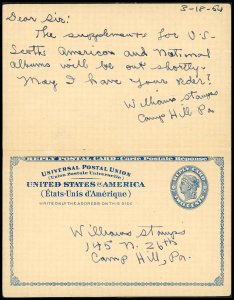 3-18-54
Dear Sir:
The supplements for U-S-
Scotts American and National
albums will be out shortly.
May I have your order?
Williams Stamps
Camp Hill Pa
REPLY POSTAL CARD.-Carte Postale Réponse.
UNIVERSAL POSTAL UNION
(Union Postale Universelle)
UNITED STATES OF AMERICA
(États-Unis d'Amérique)
WRITE ONLY THE ADDRESS ON THIS SIDE
Williams Stamps
145 N. 26th
Camp Hill, Pa.